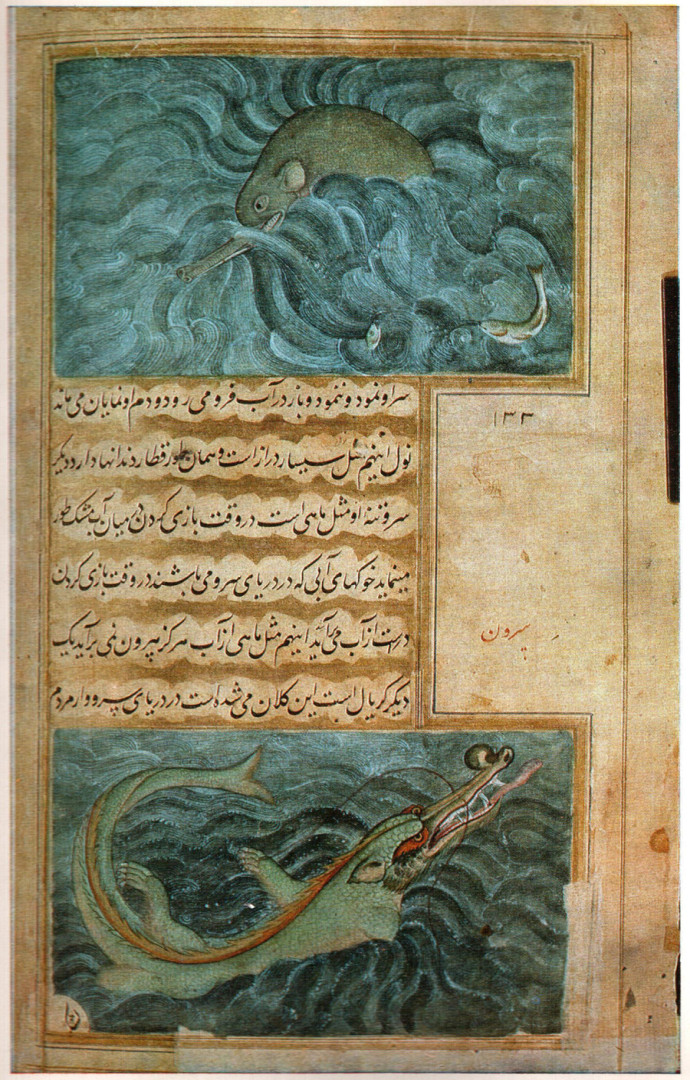 سر او نمود و ننمود و باز در آب فرو می رود و دم او نمایان می ماند
۱۳۳
نول اینهم مثل سیسار دراز است و همان طور قطار دندانها دارد دیگر
سر و تنهٔ او مثل ماهی است در وقت بازی کردن در میان آب مشک طور
مینماید خوکهای آبی که در دریای سرو می باشند در وقت بازی کردن
درست از آب می برآیند اینهم مثل ماهی از آب هرگز بیرون نمی برآید یک
دیگر گریال است این کلان می شده است در دریای مردم